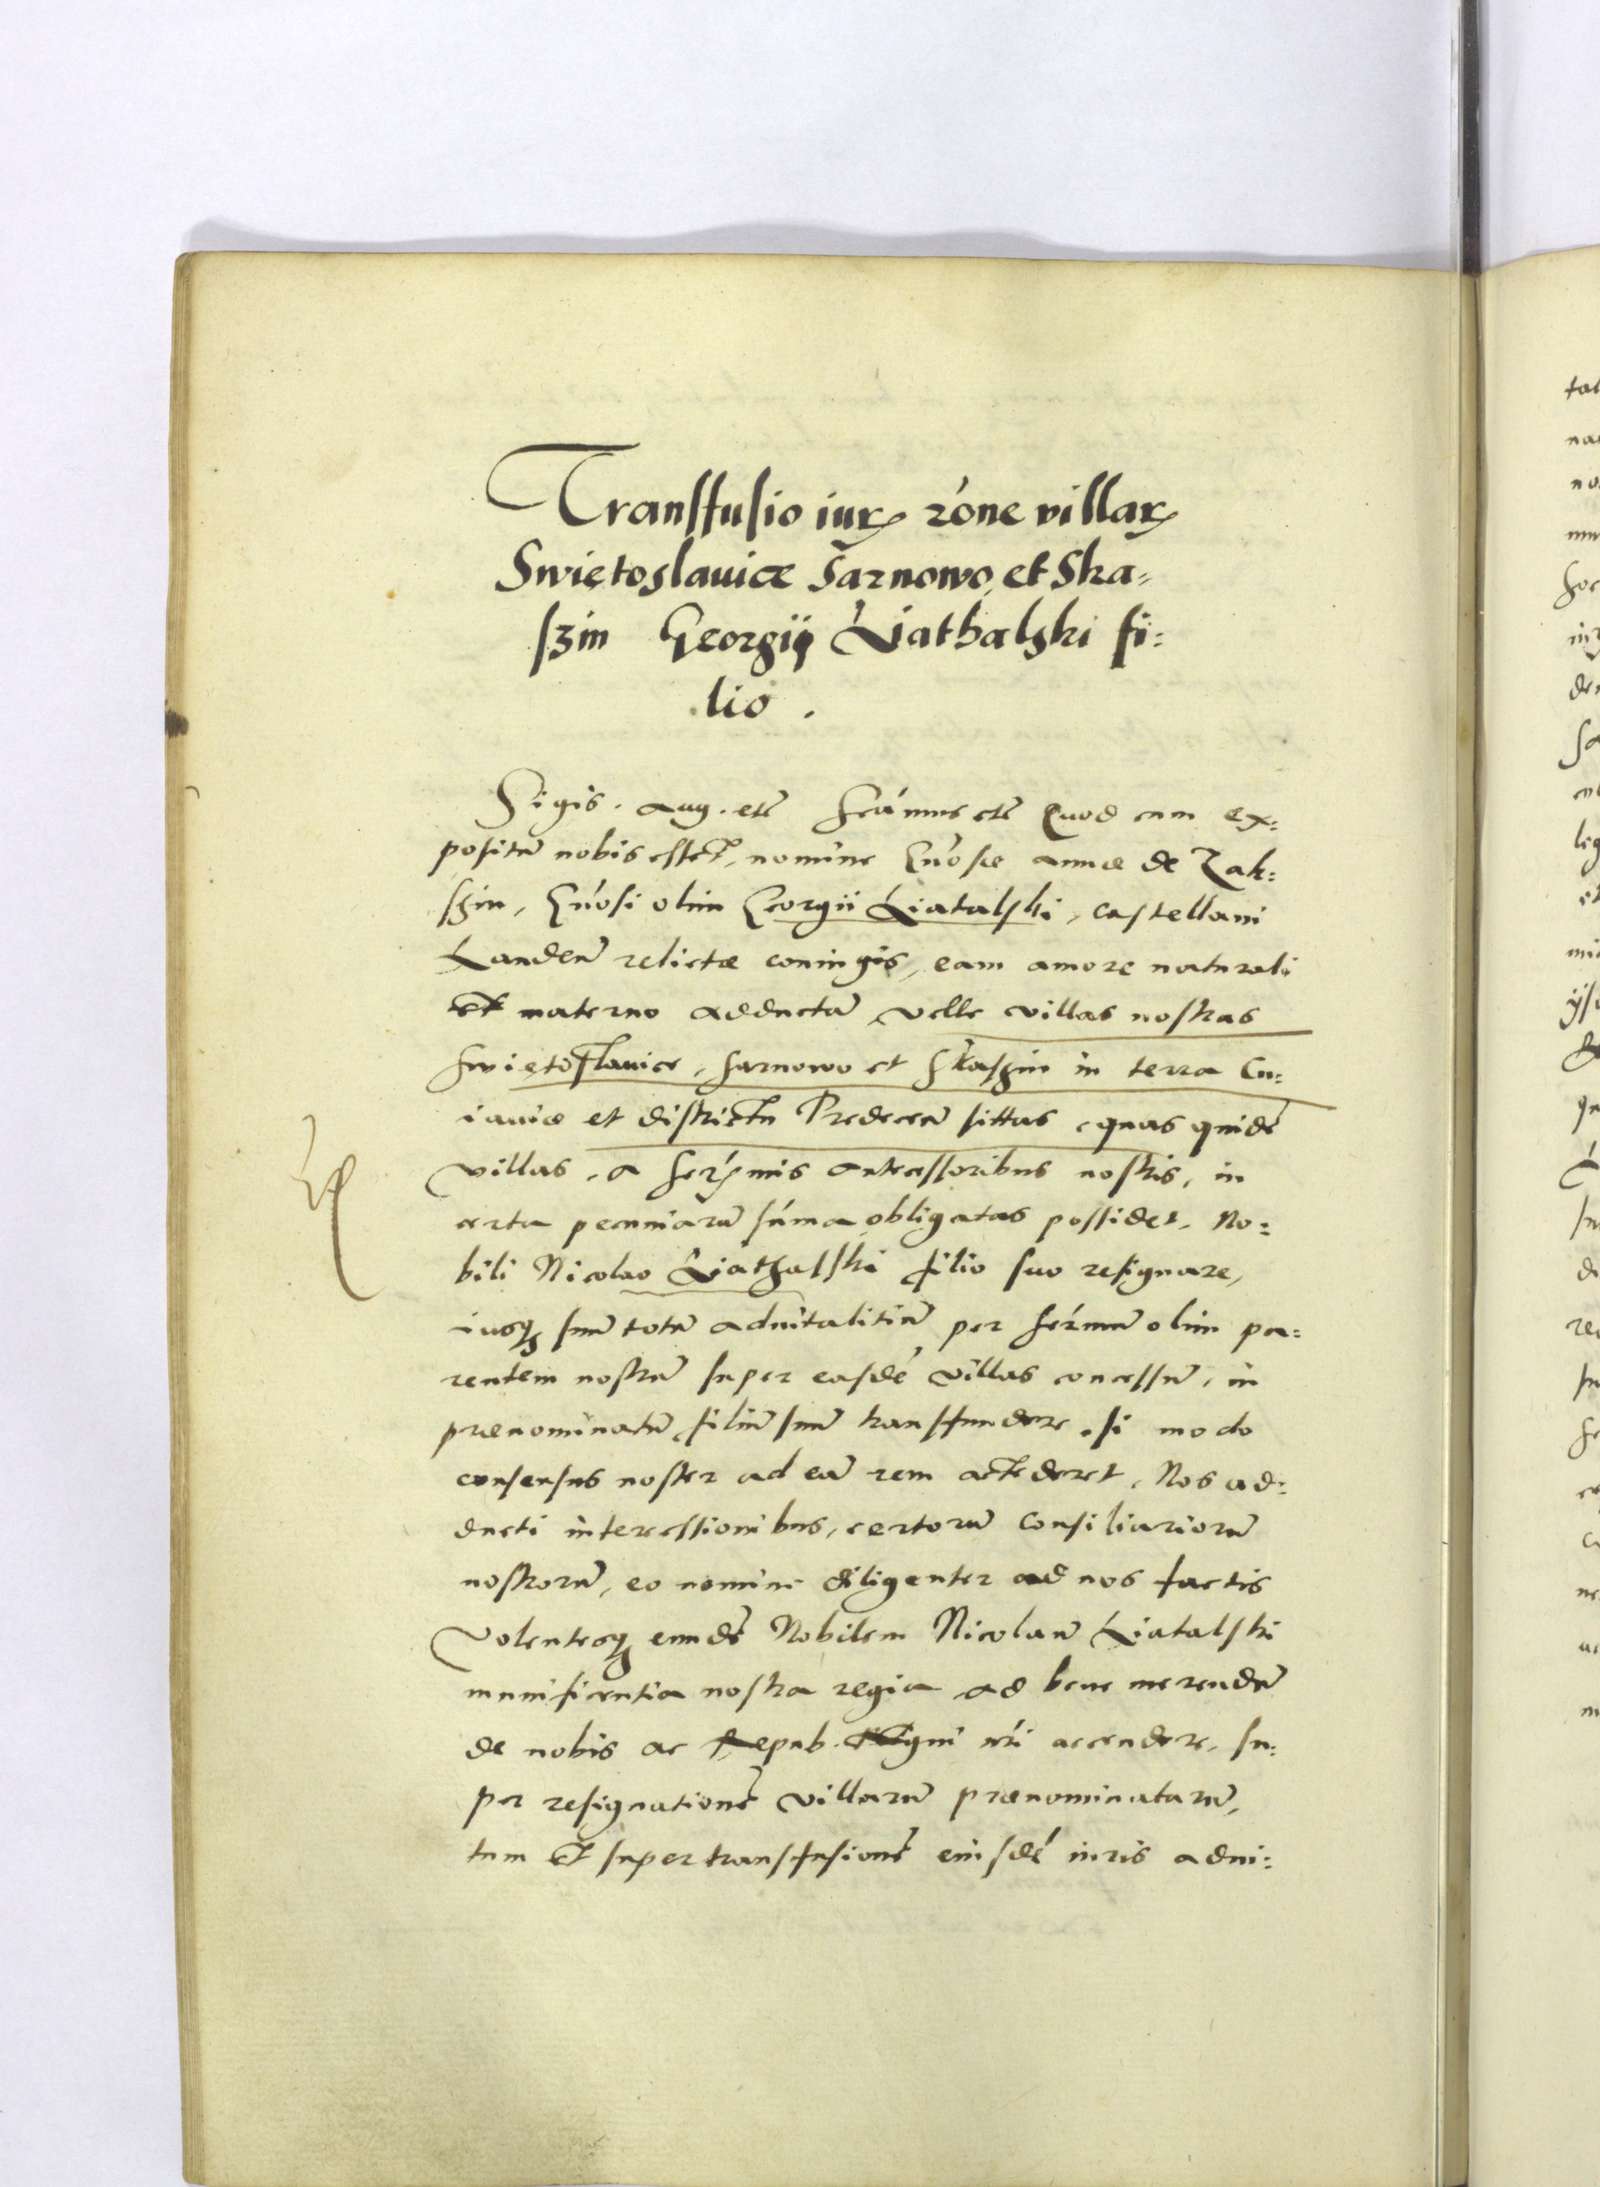 Transfusio iurꝝ rône villaꝝ
Swiętoslauice Sarnowo, et Ska=
szin Georgij Liathalski fi=
lio.
Sigis. Aug. etc̃ scámus etc̃ Quod cum ex=
positũ nobis esset, nomine Gńosæ Annæ de Zak=
szin, Gńosi olim Georgii Liatalski, castellani
Landeñ relictæ coniugis, eam amore naturali
et materno adductã, velle villas nostras
Swiętoslauice, Sarnowo et Skaszin in terra Cu=
iauiæ et districtu Predeceñ sittas, quas quidẽ
villas, a serꝫmis antecessoribus nostris, in
certa pecuniarũ súma obligatas possidet, No=
bili Nicolao Liathalski filio suo resignare,
iusqꝫ suũ totũ aduitalitiũ per serḿum olim pa=
rentem nostrũ super easdẽ villas concessũ, in
prænominatũ filiũ suũ transfundere, si modo
consensus noster ad eã rem accederet, Nos ad=
ducti intercessionibus, certorũ Consiliariorũ
nostrorũ, eo nomine diligenter ad nos factis
Volentesqꝫ eundẽ Nobilem Nicolaũ Liatalski
munificentia nostra regia ad bene merendũ
de nobis ac Repub. Regni nŕi accendere, su=
per resignationẽ villarũ prænominatarũ,
tum et super transfusionẽ eiusdẽ iuris adui=